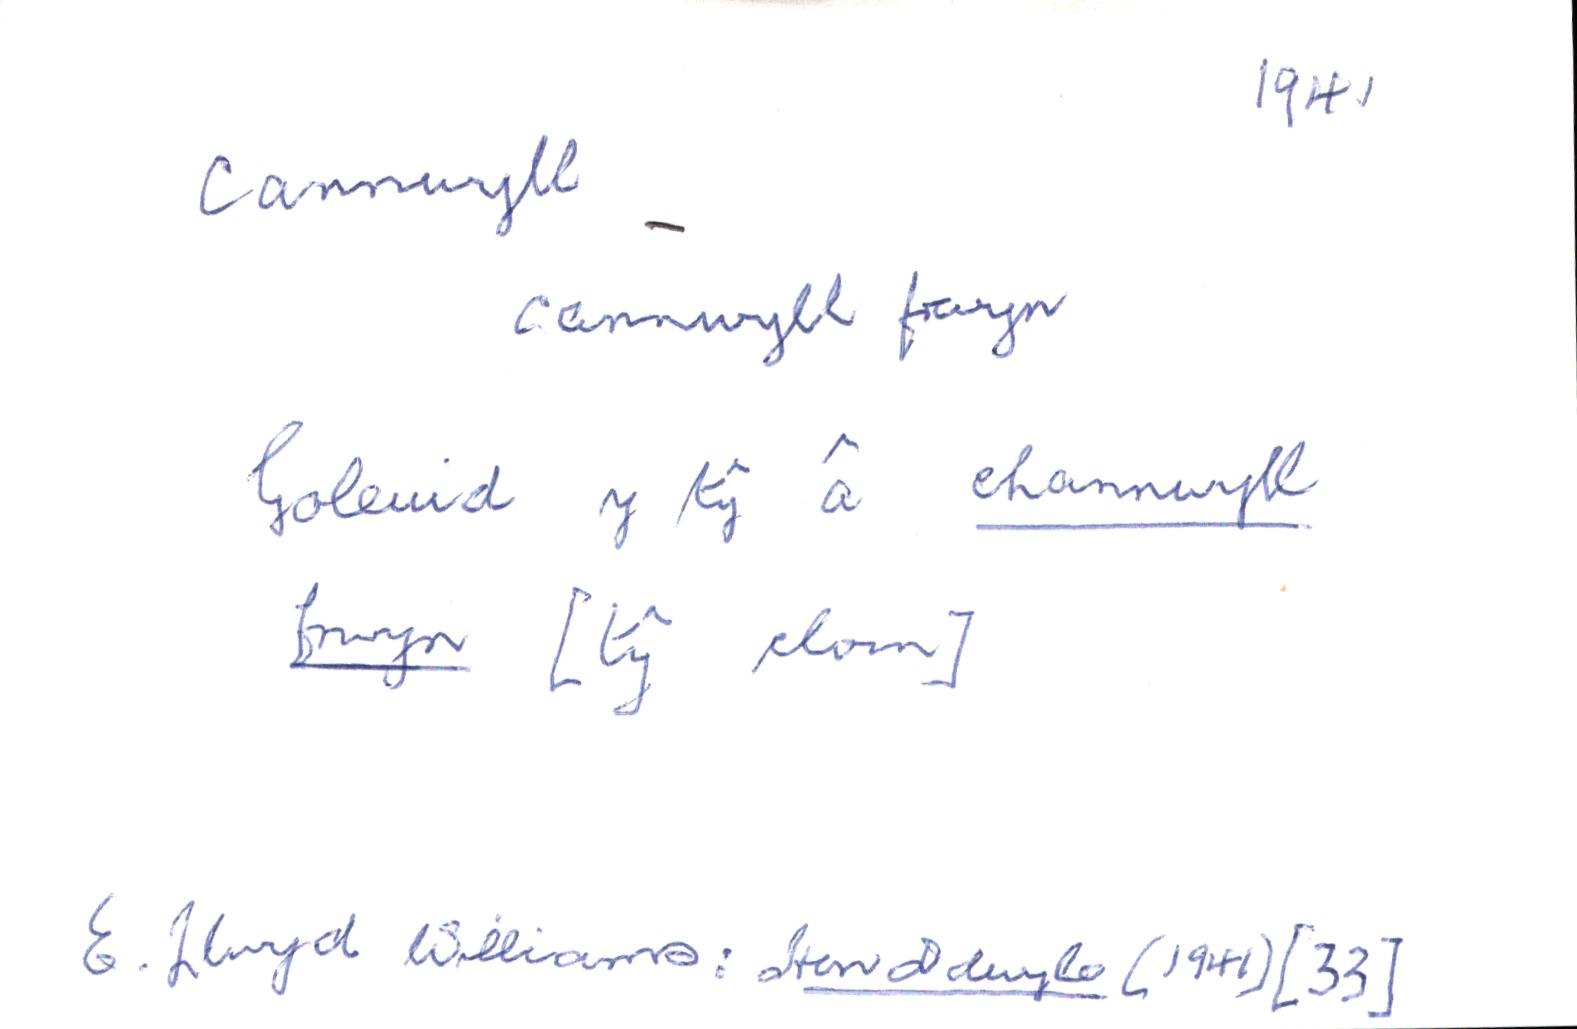 1941
Cannwyll –
cannwyll frwyn
Goleuid y tŷ â channwyll
frwyn [tŷ clom]
E. Llwyd Williams: Hen Ddwylo (1941) [33]